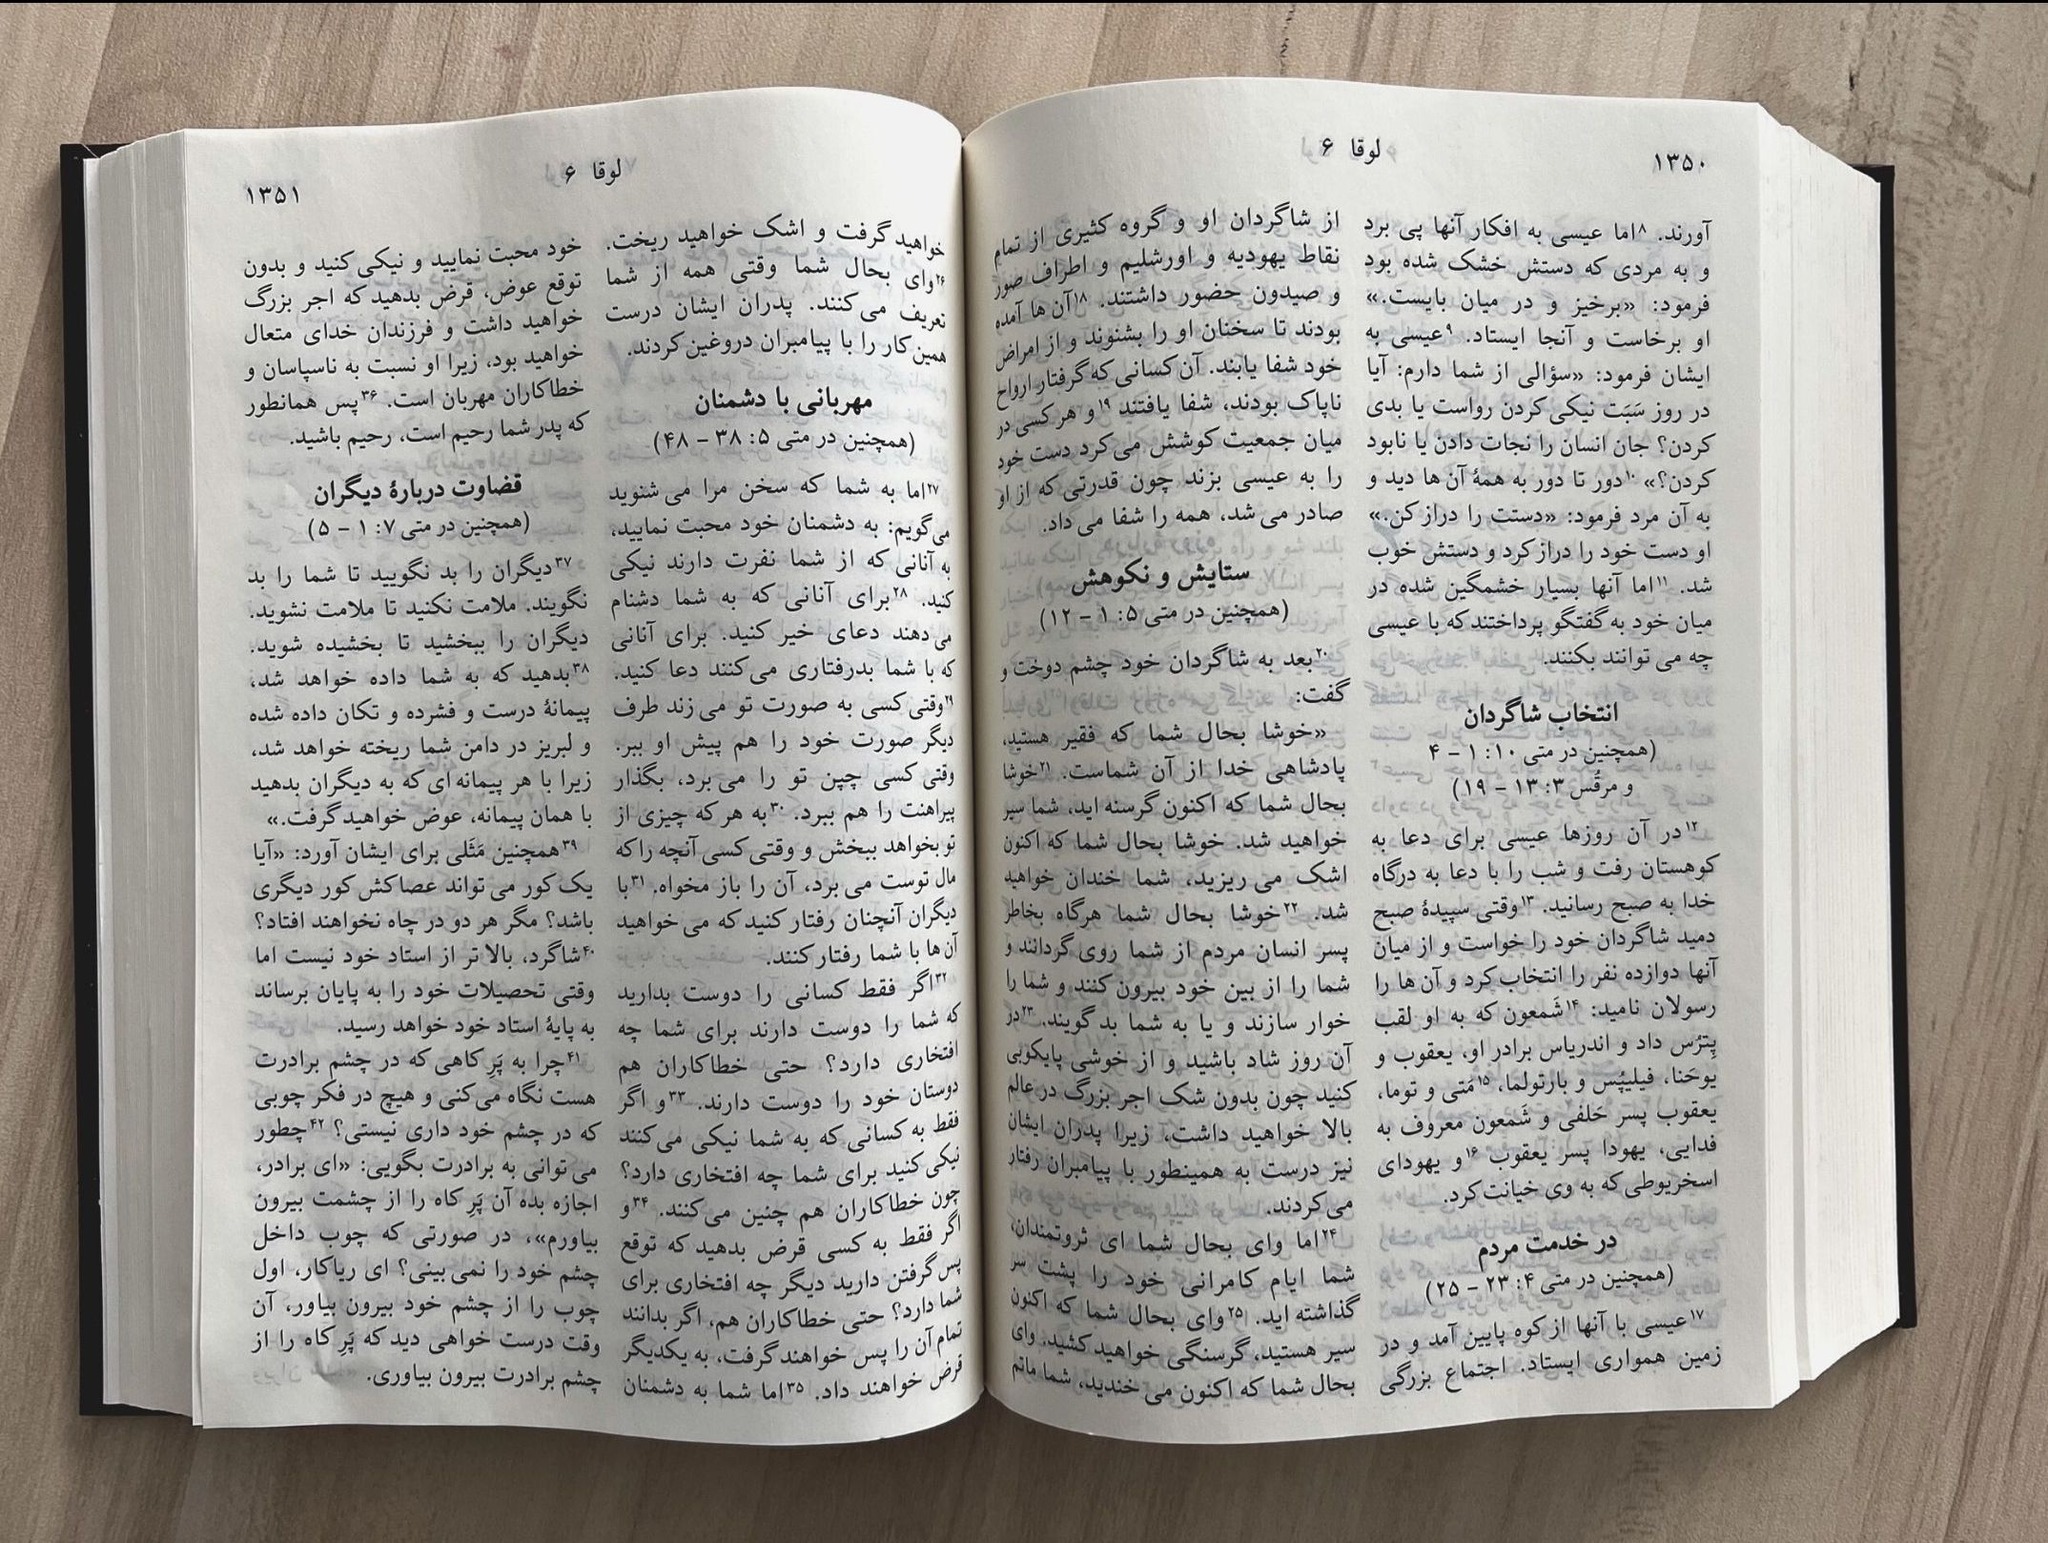 ۱۳۵۰
لوقا ۶
آورند. ۸اما عیسی به افکار آنها پی برد
و به مردی که دستش خشک شده بود
فرمود: «برخیز و در میان بایست.»
او برخاست و آنجا ایستاد. ۹عیسی به
ایشان فرمود: «سؤالی از شما دارم: آیا
در روز سَبَت نیکی کردن رواست یا بدی
کردن؟ جان انسان را نجات دادن یا نابود
کردن؟» ۱۰دور تا دور به همهٔ آن ها دید و
به آن مرد فرمود: «دستت را دراز کن.»
او دست خود را دراز کرد و دستش خوب
شد. ۱۱اما آنها بسیار خشمگین شده در
میان خود به گفتگو پرداختند که با عیسی
چه می توانند بکنند.
انتخاب شاگردان
(همچنین در متی ۱۰: ۱ - ۴
و مرقُس ۳: ۱۳ - ۱۹)
۱۲در آن روزها عیسی برای دعا به
کوهستان رفت و شب را با دعا به درگاه
خدا به صبح رسانید. ۱۳وقتی سپیدهٔ صبح
دمید شاگردان خود را خواست و از میان
آنها دوازده نفر را انتخاب کرد و آن ها را
رسولان نامید: ۱۴شَمعون که به او لقب
پِترُس داد و اندریاس برادر او، یعقوب و
یوحَنا، فیلیپُس و بارتولما، ۱۵مَتی و توما،
یعقوب پسر حَلفی و شَمعون معروف به
فدایی، یهودا پسر یعقوب ۱۶و یهودای
اسخریوطی که به وی خیانت کرد.
در خدمت مردم
(همچنین در متی ۴: ۲۳ - ۲۵)
۱۷عیسی با آنها از کوه پایین آمد و در
زمین همواری ایستاد. اجتماع بزرگی
از شاگردان او و گروه کثیری از تمام
نقاط یهودیه و اورشلیم و اطراف صور
و صیدون حضور داشتند. ۱۸آن ها آمده
بودند تا سخنان او را بشنوند و از امراض
خود شفا یابند. آن کسانی که گرفتار ارواح
ناپاک بودند، شفا یافتند ۱۹و هر کسی در
میان جمعیت کوشش می کرد دست خود
را به عیسی بزند چون قدرتی که از او
صادر می شد، همه را شفا می داد.
ستایش و نکوهش
(همچنین در متی ۵: ۱ - ۱۲)
۲۰بعد به شاگردان خود چشم دوخت و
گفت:
«خوشا بحال شما که فقیر هستید،
پادشاهی خدا از آن شماست. ۲۱خوشا
بحال شما که اکنون گرسنه اید، شما سیر
خواهید شد. خوشا بحال شما که اکنون
اشک می ریزید، شما خندان خواهید
شد. ۲۲خوشا بحال شما هرگاه بخاطر
پسر انسان مردم از شما روی گردانند و
شما را از بین خود بیرون کنند و شما را
خوار سازند و یا به شما بد گویند. ۲۳در
آن روز شاد باشید و از خوشی پایکوبی
کنید چون بدون شک اجر بزرگ در عالم
بالا خواهید داشت، زیرا پدران ایشان
نیز درست به همینطور با پیامبران رفتار
می کردند.
۲۴اما وای بحال شما ای ثروتمندان،
شما ایام کامرانی خود را پشت سر
گذاشته اید. ۲۵وای بحال شما که اکنون
سیر هستید، گرسنگی خواهید کشید. وای
بحال شما که اکنون می خندید، شما ماتم
لوقا ۶
۱۳۵۱
خواهید گرفت و اشک خواهید ریخت.
۲۶وای بحال شما وقتی همه از شما
تعریف می کنند. پدران ایشان درست
همین کار را با پیامبران دروغین کردند.
مهربانی با دشمنان
(همچنین در متی ۵: ۳۸ - ۴۸)
۲۷اما به شما که سخن مرا می شنوید
می گویم: به دشمنان خود محبت نمایید،
به آنانی که از شما نفرت دارند نیکی
کنید. ۲۸برای آنانی که به شما دشنام
می دهند دعای خیر کنید. برای آنانی
که با شما بدرفتاری می کنند دعا کنید.
۲۹وقتی کسی به صورت تو می زند طرف
دیگر صورت خود را هم پیش او ببر.
وقتی کسی چپن تو را می برد، بگذار
پیراهنت را هم ببرد. ۳۰به هر که چیزی از
تو بخواهد ببخش و وقتی کسی آنچه را که
مال توست می برد، آن را باز مخواه. ۳۱با
دیگران آنچنان رفتار کنید که می خواهید
آن ها با شما رفتار کنند.
۳۲اگر فقط کسانی را دوست بدارید
که شما را دوست دارند برای شما چه
افتخاری دارد؟ حتی خطاکاران هم
دوستان خود را دوست دارند. ۳۳و اگر
فقط به کسانی که به شما نیکی می کنند
نیکی کنید برای شما چه افتخاری دارد؟
چون خطاکاران هم چنین می کنند. ۳۴و
اگر فقط به کسی قرض بدهید که توقع
پس گرفتن دارید دیگر چه افتخاری برای
شما دارد؟ حتی خطاکاران هم، اگر بدانند
تمام آن را پس خواهند گرفت، به یکدیگر
قرض خواهند داد. ۳۵اما شما به دشمنان
خود محبت نمایید و نیکی کنید و بدون
توقع عوض، قرض بدهید که اجر بزرگ
خواهید داشت و فرزندان خدای متعال
خواهید بود، زیرا او نسبت به ناسپاسان و
خطاکاران مهربان است. ۳۶پس همانطور
که پدر شما رحیم است، رحیم باشید.
قضاوت دربارهٔ دیگران
(همچنین در متی ۷: ۱ - ۵)
۳۷دیگران را بد نگویید تا شما را بد
نگویند. ملامت نکنید تا ملامت نشوید.
دیگران را ببخشید تا بخشیده شوید.
۳۸بدهید که به شما داده خواهد شد،
پیمانهٔ درست و فشرده و تکان داده شده
و لبریز در دامن شما ریخته خواهد شد،
زیرا با هر پیمانه ای که به دیگران بدهید
با همان پیمانه، عوض خواهید گرفت.»
۳۹همچنین مَثَلی برای ایشان آورد: «آیا
یک کور می تواند عصاکش کور دیگری
باشد؟ مگر هر دو در چاه نخواهند افتاد؟
۴۰شاگرد، بالا تر از استاد خود نیست اما
وقتی تحصیلات خود را به پایان برساند
به پایهٔ استاد خود خواهد رسید.
۴۱چرا به پَرِ کاهی که در چشم برادرت
هست نگاه می کنی و هیچ در فکر چوبی
که در چشم خود داری نیستی؟ ۴۲چطور
می توانی به برادرت بگویی: «ای برادر،
اجازه بده آن پَرِ کاه را از چشمت بیرون
بیاورم»، در صورتی که چوب داخل
چشم خود را نمی بینی؟ ای ریاکار، اول
چوب را از چشم خود بیرون بیاور، آن
وقت درست خواهی دید که پَرِ کاه را از
چشم برادرت بیرون بیاوری.